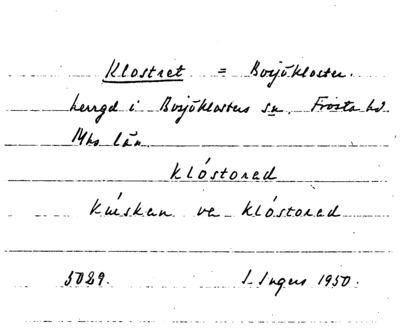 Klostret = Bosjökloster.
herrgd i Bosjöklosters sn. Frosta hd.
Mhs län.
klóstored
kúskan va klóstored
5029. I. Ingers 1950.